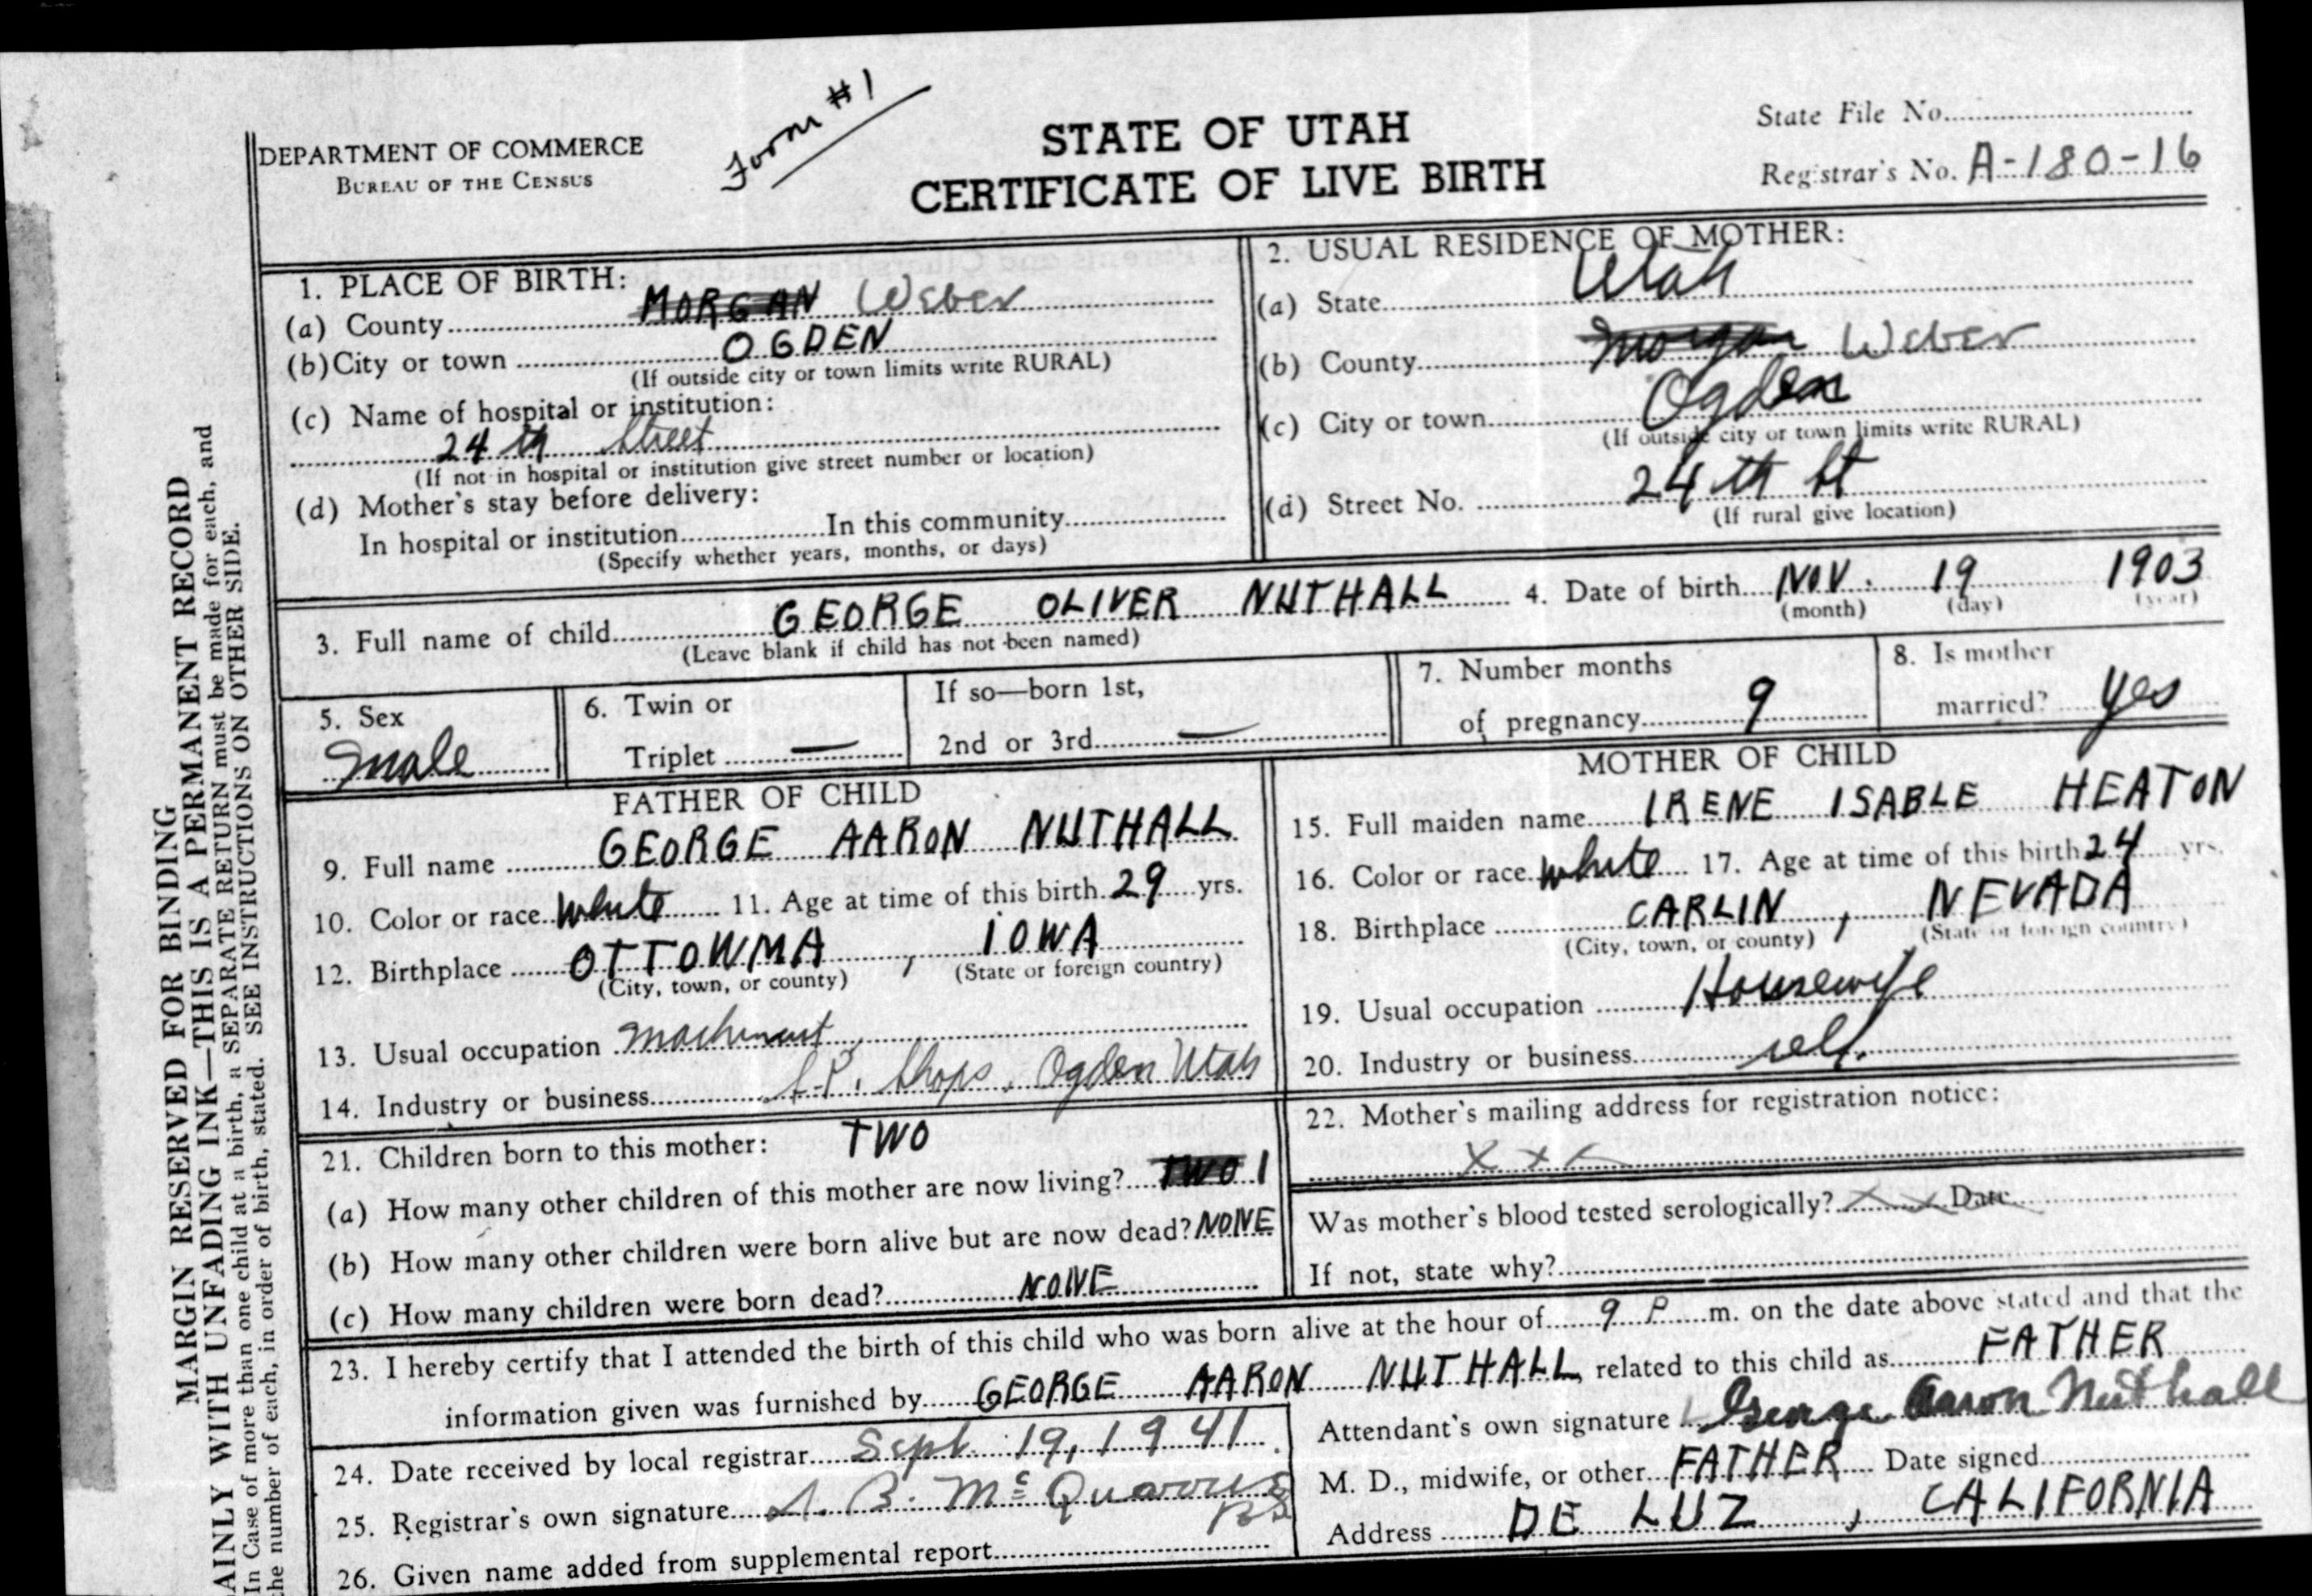 Form #1
DEPARTMENT OF COMMERCE
BUREAU OF THE CENSUS
STATE OF UTAH
CERTIFICATE OF LIVE BIRTH
State File No.
Registrar's No. A-180-16
MARGIN RESERVED FOR BINDING
AINLY WITH UNFADING INK—THIS IS A PERMANENT RECORD
In Case of more than one child at a birth, a SEPARATE RETURN must be made for each, and
the number of each, in order of birth, stated. SEE INSTRUCTIONS ON OTHER SIDE.
1. PLACE OF BIRTH:
(a) County MORGAN Weber
(b) City or town OGDEN
(If outside city or town limits write RURAL)
(c) Name of hospital or institution:
24 th Street
(If not in hospital or institution give street number or location)
(d) Mother's stay before delivery:
In hospital or institution In this community
(Specify whether years, months, or days)
2. USUAL RESIDENCE OF MOTHER:
(a) State Utah
(b) County Morgan Weber
(c) City or town Ogden
(If outside city or town limits write RURAL)
(d) Street No. 24 th St
(If rural give location)
3. Full name of child GEORGE OLIVER NUTHALL 4. Date of birth NOV. 19 1903
(Leave blank if child has not been named) (month) (day) (year)
5. Sex
male
6. Twin or
Triplet —
If so—born 1st,
2nd or 3rd —
7. Number months
of pregnancy 9
8. Is mother
married? yes
FATHER OF CHILD
9. Full name GEORGE AARON NUTHALL
10. Color or race White 11. Age at time of this birth 29 yrs.
12. Birthplace OTTOWMA, IOWA
(City, town, or county) (State or foreign country)
13. Usual occupation Machinist
14. Industry or business S.P. Shops, Ogden Utah
MOTHER OF CHILD
15. Full maiden name IRENE ISABLE HEATON
16. Color or race White 17. Age at time of this birth 24 yrs.
18. Birthplace CARLIN, NEVADA
(City, town, or county) (State or foreign country)
19. Usual occupation Housewife
20. Industry or business self.
21. Children born to this mother: TWO
(a) How many other children of this mother are now living? TWO 1
(b) How many other children were born alive but are now dead? NONE
(c) How many children were born dead? NONE
22. Mother's mailing address for registration notice:
x x x
Was mother's blood tested serologically? x x Date
If not, state why?
23. I hereby certify that I attended the birth of this child who was born alive at the hour of 9 P m. on the date above stated and that the
information given was furnished by GEORGE AARON NUTHALL, related to this child as FATHER
24. Date received by local registrar Sept. 19, 1941
25. Registrar's own signature A. B. McQuarrie
26. Given name added from supplemental report
Attendant's own signature George Aaron Nuthall
M. D., midwife, or other FATHER Date signed
Address DE LUZ, CALIFORNIA